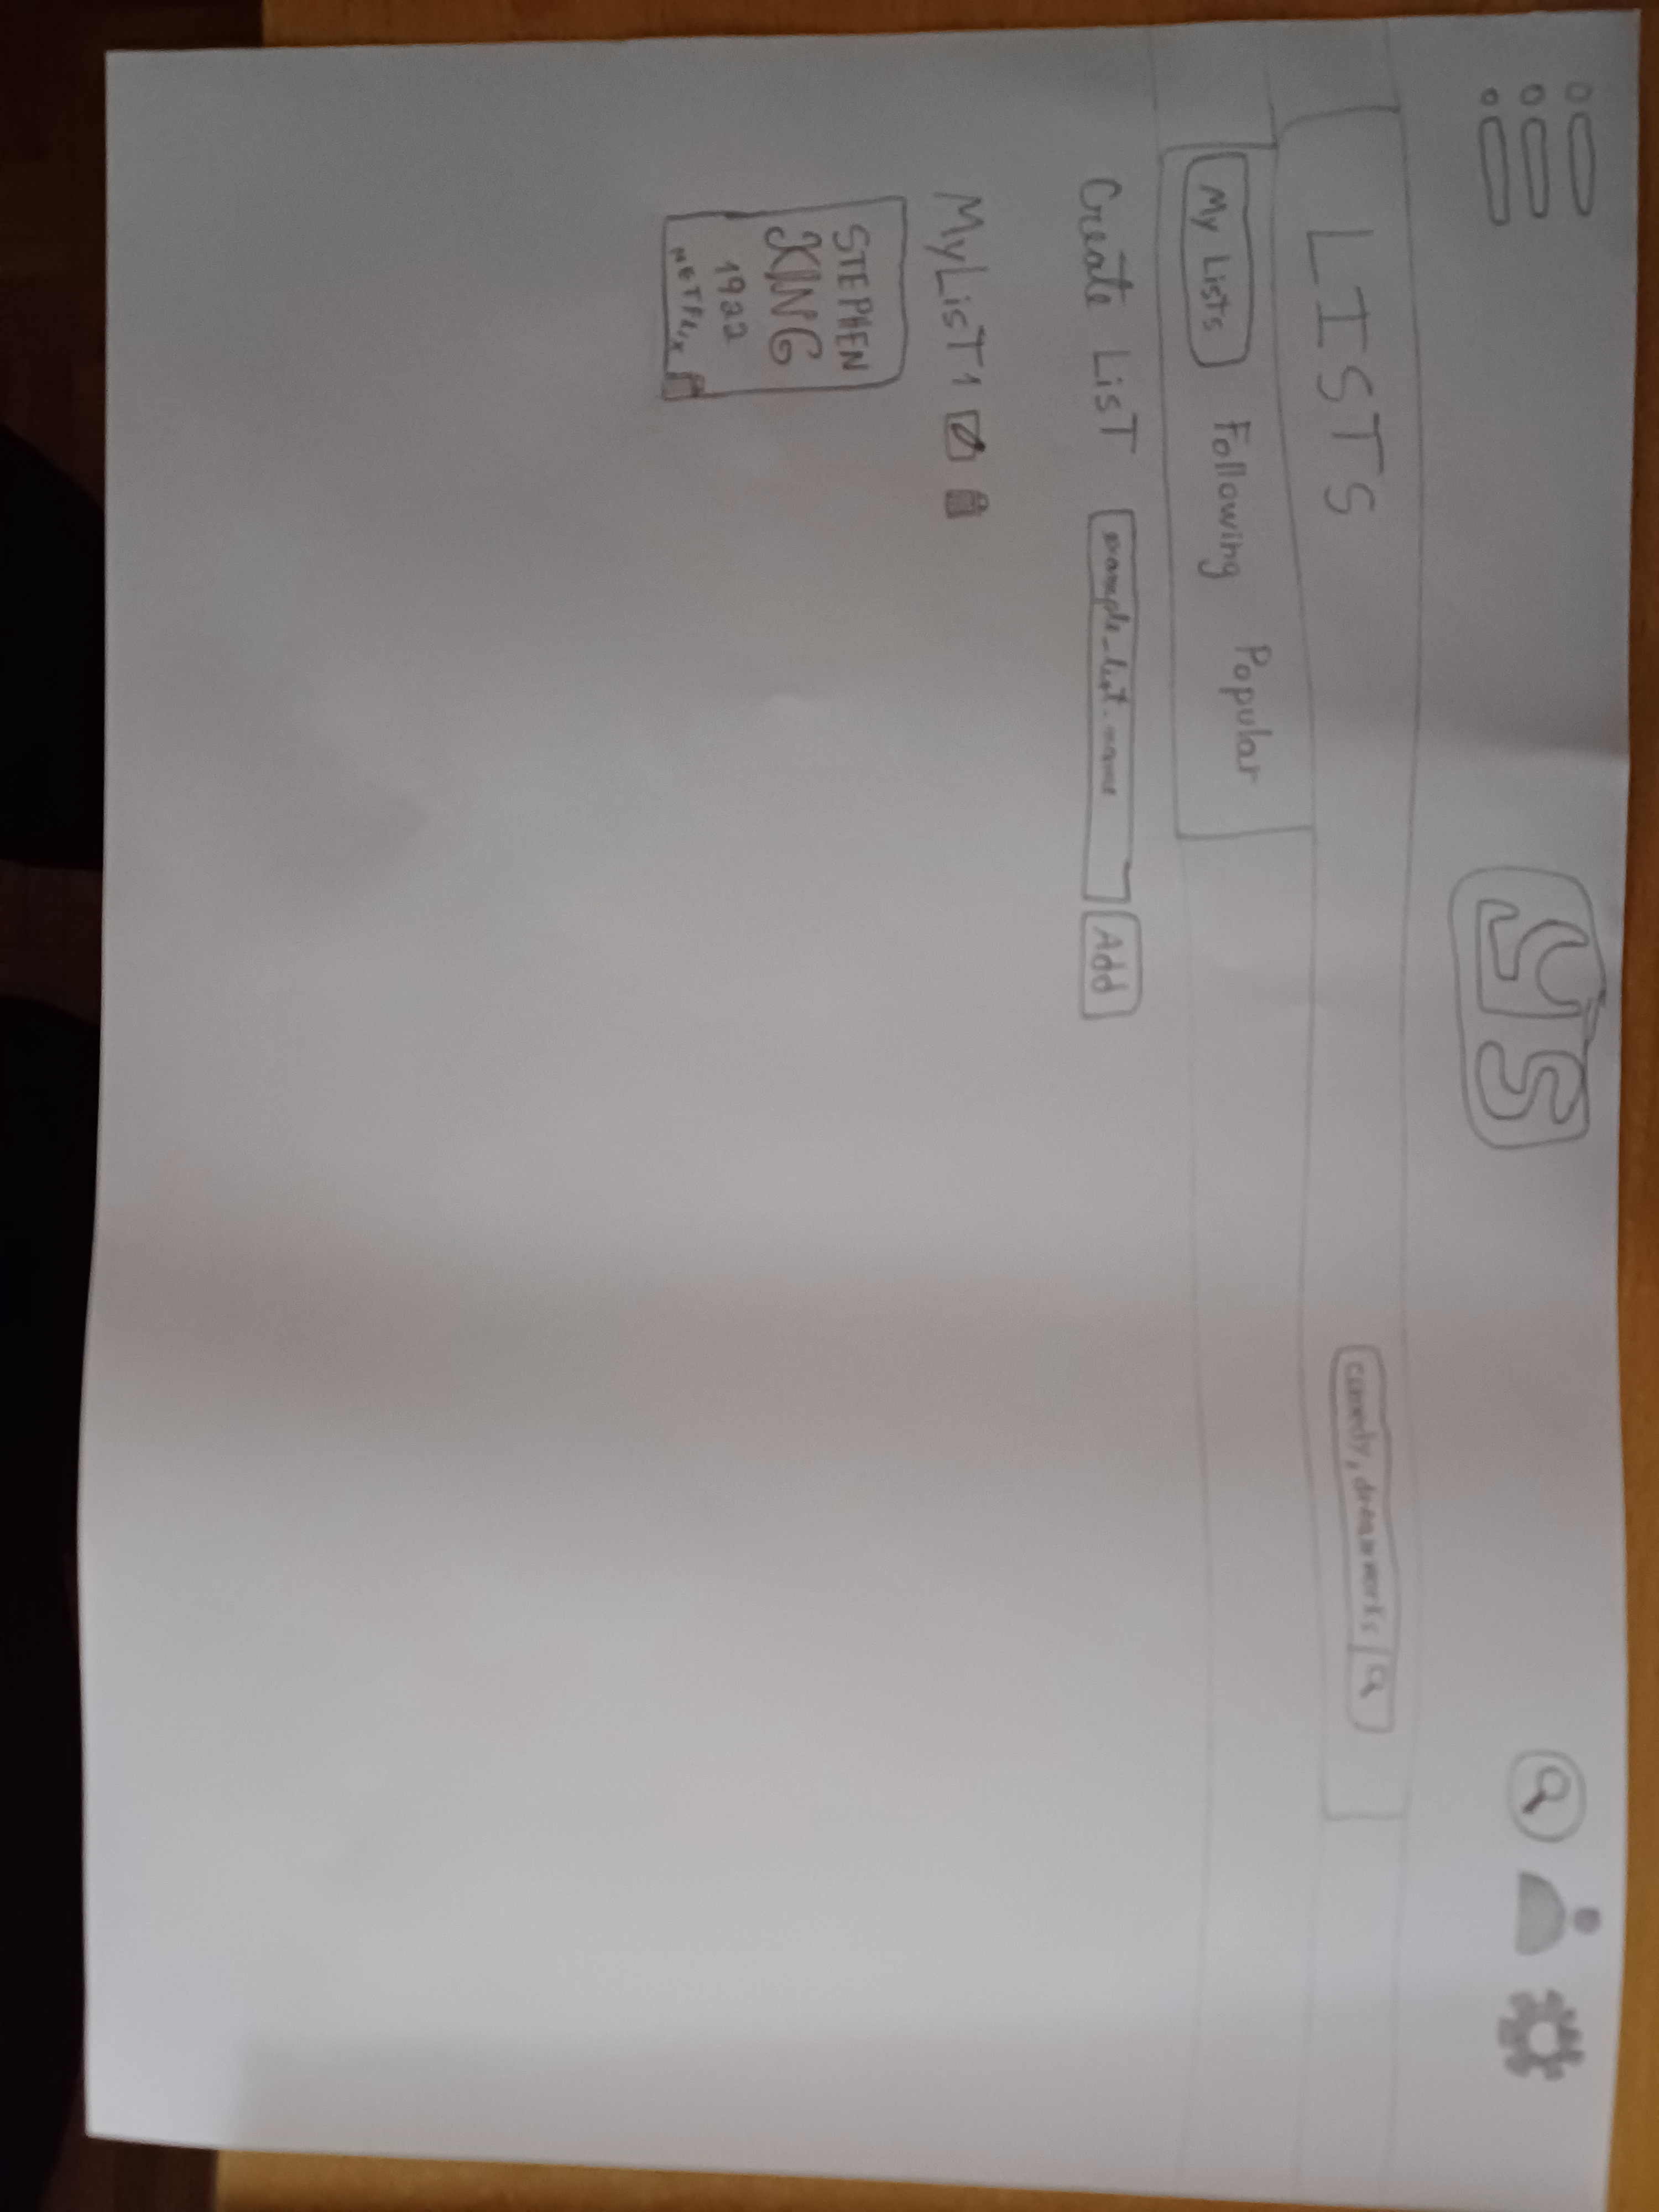 JS
LISTS
comedy, dreamworks
My Lists Following Popular
Create LisT example_list_name Add
MyLisT1
STEPHEN
KING
1922
NETFLIX